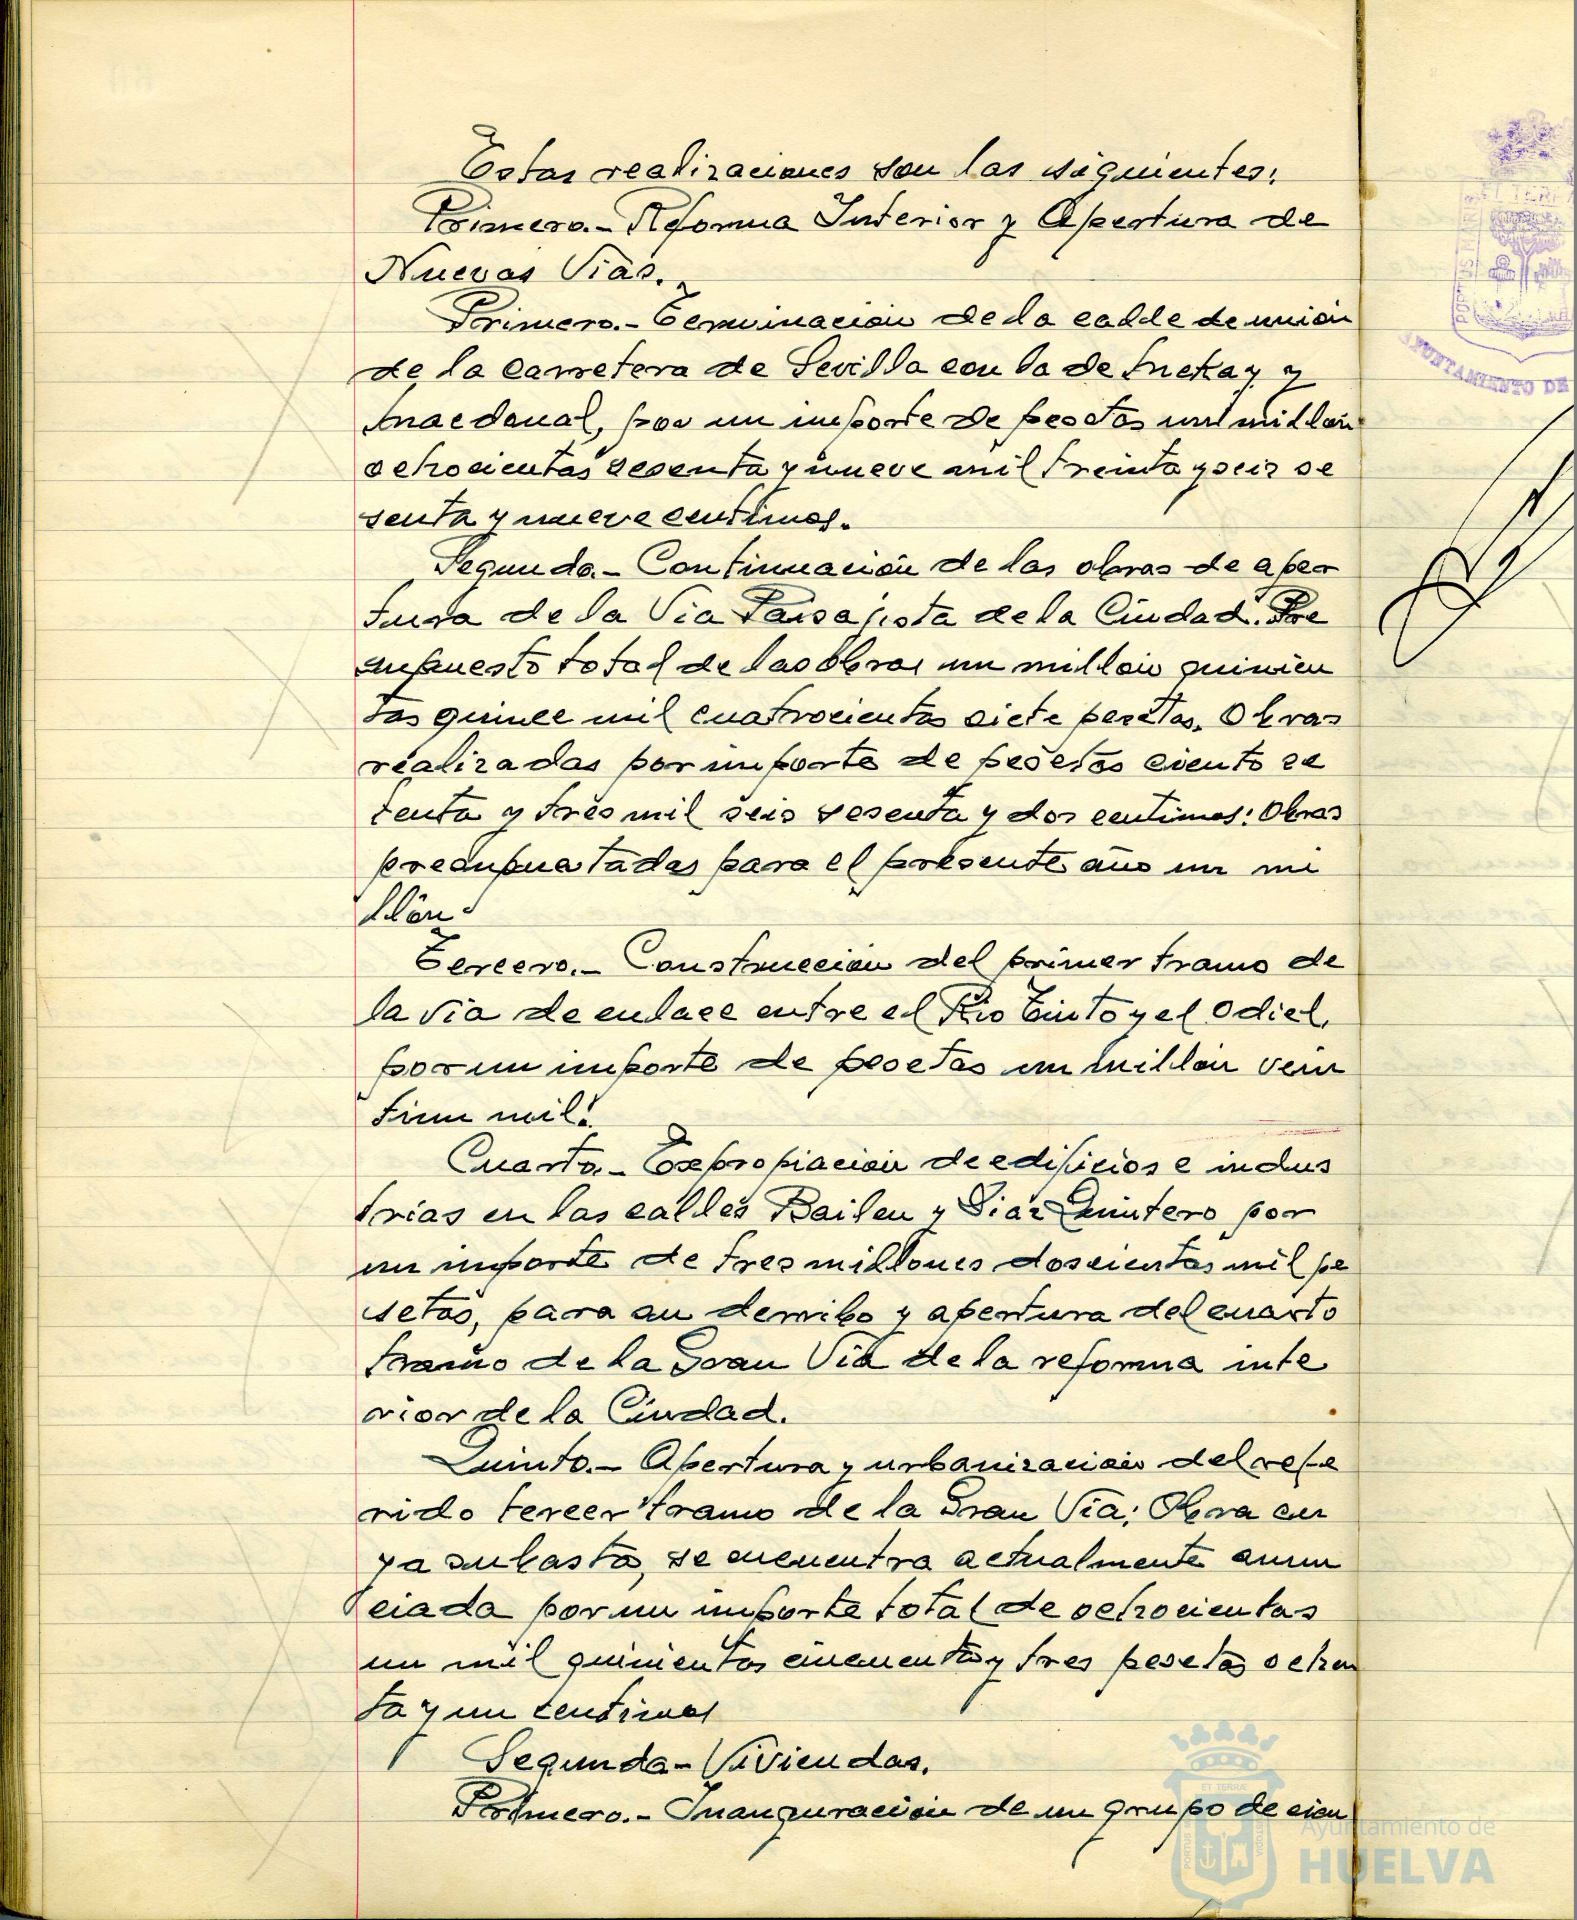 Estas realizaciones son las siguientes:
Primero.- Reforma Interior y Apertura de
Nuevas Vías.
Primero.- Terminación de la calle de unión
de la carretera de Sevilla con la de Mckay y
Macdonal, por un importe de pesetas un millón
ochocientas sesenta y nueve mil treinta y seis se
senta y nueve centimos.
Segundo.- Continuación de las obras de aper
tura de la Via Paisajista de la Ciudad. Pre
supuesto total de las obras un millón quinien
tas quince mil cuatrocientas siete pesetas. Obras
realizadas por importe de pesetas ciento se
tenta y tres mil seis sesenta y dos centimos: Obras
presupuestadas para el presente año un mi
llón.
Tercero.- Construcción del primer tramo de
la vía de enlace entre el Rio Tinto y el Odiel,
por un importe de pesetas un millón vein
tiun mil.
Cuarto.- Expropiación de edificios e indus
trias en las calles Bailen y Diaz Quintero por
un importe de tres millones doscientas mil pe
setas, para su derribo y apertura del cuarto
tramo de la Gran Vía de la reforma inte
rior de la Ciudad.
Quinto.- Apertura y urbanización del refe
rido tercer tramo de la Gran Vía; Obra cu
ya subasta, se encuentra actualmente anun
ciada por un importe total de ochocientas
un mil quinientas cincuenta y tres pesetas ochen
ta y un centimos
Segunda- Viviendas.
Primero.- Inauguración de un grupo de cien
PORTUS MARIS
ET TERRAE
AYUNTAMIENTO DE
Ayuntamiento de
HUELVA